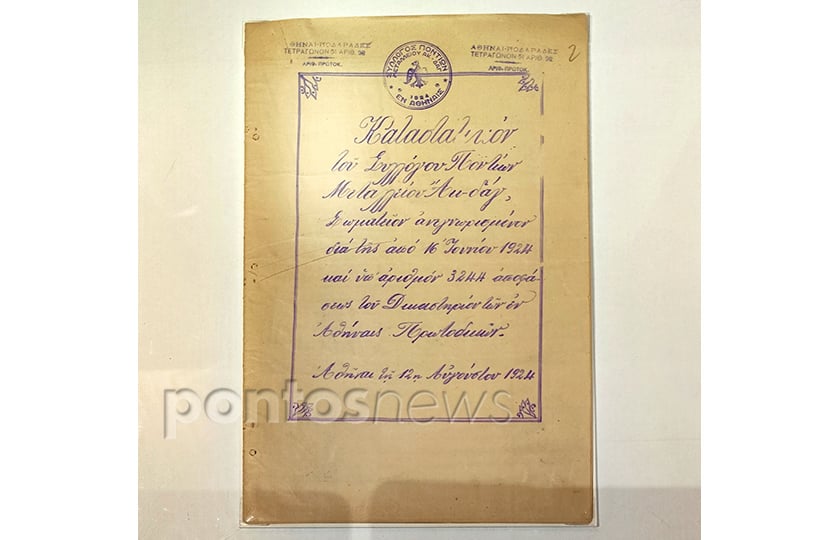 ΑΘΗΝΑΙ-ΠΟΔΑΡΑΔΕΣ
ΤΕΤΡΑΓΩΝΟΝ 51 ΑΡΙΘ. 92
ΑΡΙΘ. ΠΡΩΤΟΚ.
ΣΥΛΛΟΓΟΣ ΠΟΝΤΙΩΝ
ΜΕΤΑΛΛΕΙΟΥ ΑΚ-ΔΑΓ
1924
ΕΝ ΑΘΗΝΑΙΣ
ΑΘΗΝΑΙ-ΠΟΔΑΡΑΔΕΣ
ΤΕΤΡΑΓΩΝΟΝ 51 ΑΡΙΘ. 92
ΑΡΙΘ. ΠΡΩΤΟΚ.
2
Καταστατικόν
τοῦ Συλλόγου Ποντίων
Μεταλλείου Ἄκ-δάγ,
Σωματεῖον ἀνεγνωρισμένον
διὰ τῆς ἀπό 16 Ἰουνίου 1924
καὶ ὑπ' ἀριθμόν 3244 ἀποφά-
σεως τοῦ Δικαστηρίου τῶν ἐν
Ἀθήναις Πρωτοδικῶν.
Ἀθῆναι τῇ 12ῃ Αὐγούστου 1924
pontosnews